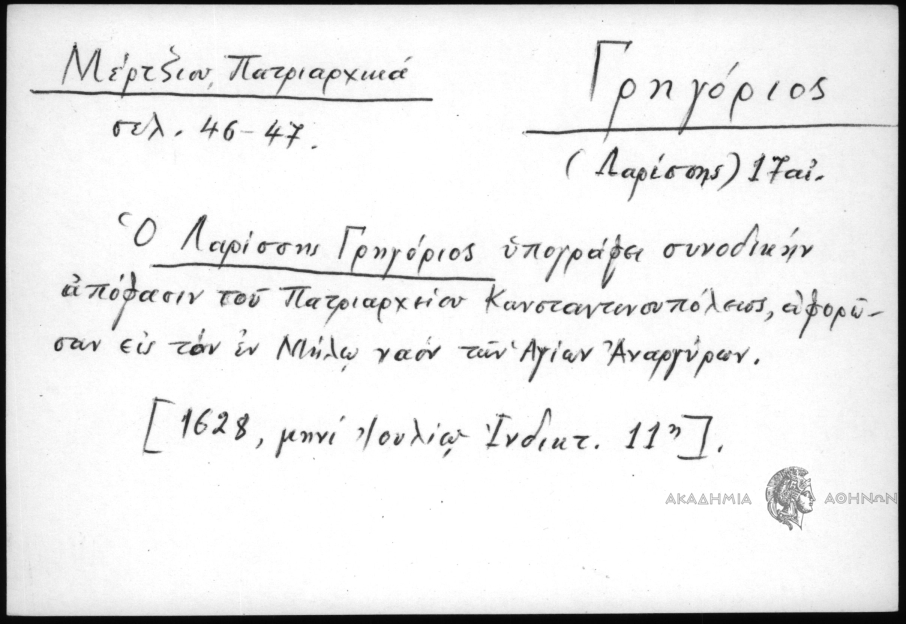 Μέρτζιου, Πατριαρχικά
σελ. 46-47.
Γρηγόριος
(Λαρίσσης) 17 αἰ.
Ὁ Λαρίσσης Γρηγόριος ὑπογράφει συνοδικήν
ἀπόφασιν τοῦ Πατριαρχείου Κωνσταντινουπόλεως, ἀφορῶ-
σαν εἰς τόν ἐν Μήλῳ ναόν τῶν Ἁγίων Ἀναργύρων.
[1628, μηνί Ἰουλίῳ Ἰνδικτ. 11η].
ΑΚΑΔΗΜΙΑ ΑΘΗΝΩΝ